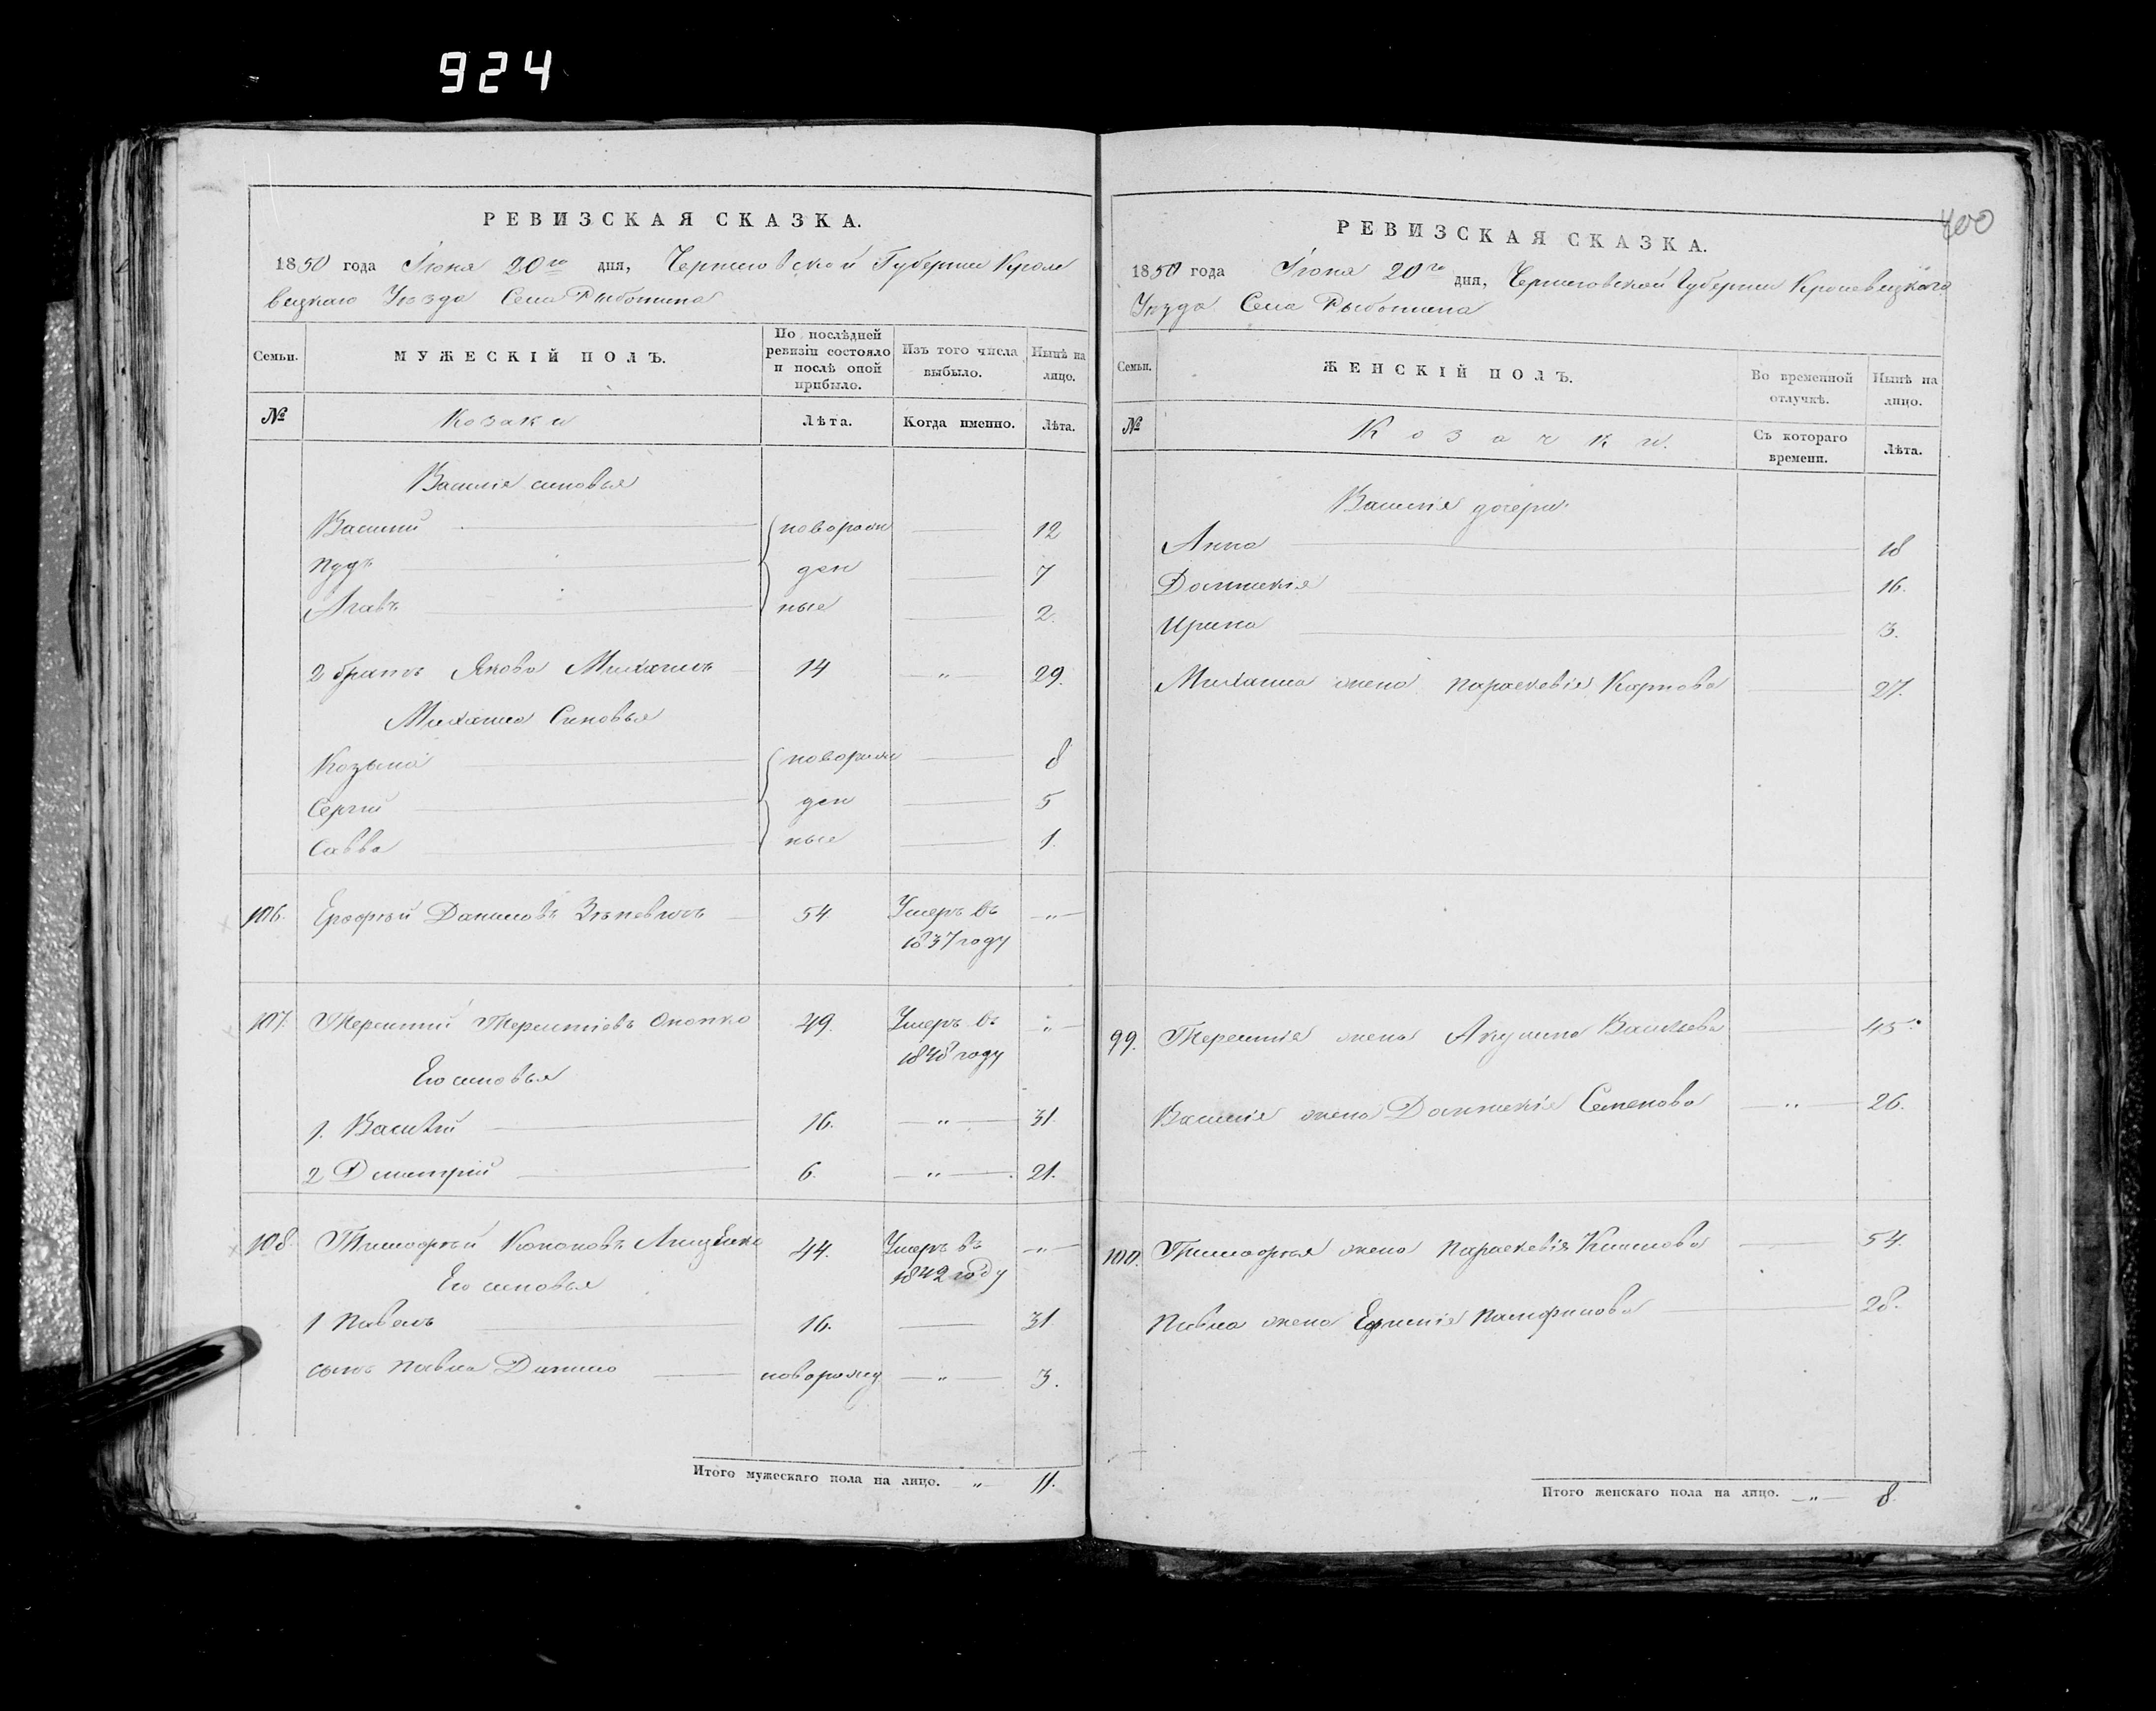 924
400
РЕВИЗСКАЯ СКАЗКА.
1850 года Іюня 20го дня, Черниговской Губерніи Кроле
вецкаго Уѣзда Села Рыботина
Семьи.
МУЖЕСКІЙ ПОЛЪ.
По послѣдней ревизіи состояло и послѣ оной прибыло.
Изъ того числа выбыло.
Нынѣ на лицо.
№
Козаки
Лѣта.
Когда именно.
Лѣта.
Василія синовья
Василий новорож 12
Пудъ ден 7
ные 2.
2 братъ Якова Михаилъ 14 „ 29.
Михаила Синовья
Козьма новорож 8
Сергій ден 5
Савва ные 1.
106. Ерофѣй Даниловъ 54 Умеръ въ „
1837 году
107. Терентий Терентіевъ 49. Умеръ въ „
1848 году
Его синовья
1. Василій 16. „ 31.
2 Дмитрій 6. „ 21.
108. Тимофѣй Кононовъ 44. Умеръ въ „
1842 году
Его синовья
1 Павелъ 16. 31
сынъ Павла Данило новорожд „ 3.
Итого мужескаго пола на лицо. „ 11.
РЕВИЗСКАЯ СКАЗКА.
1850 года Іюня 20го дня, Черниговской Губерніи Кролевецкаго
Уѣзда Села Рыботина
Семьи.
ЖЕНСКІЙ ПОЛЪ.
Во временной отлучкѣ.
Нынѣ на лицо.
№
Козачки.
Съ котораго времени.
Лѣта.
Василія дочери
Анна 18
Домникія 16.
Ирина 3.
Михаила жена Параскевія Карпова 27.
99. Терентія жена Акулина Васильева 45.
Василія жена Домникія Семенова „ 26.
100. Тимофѣя жена Параскевія 54.
Павла жена Памфилова 28.
Итого женскаго пола на лицо. „ 8.